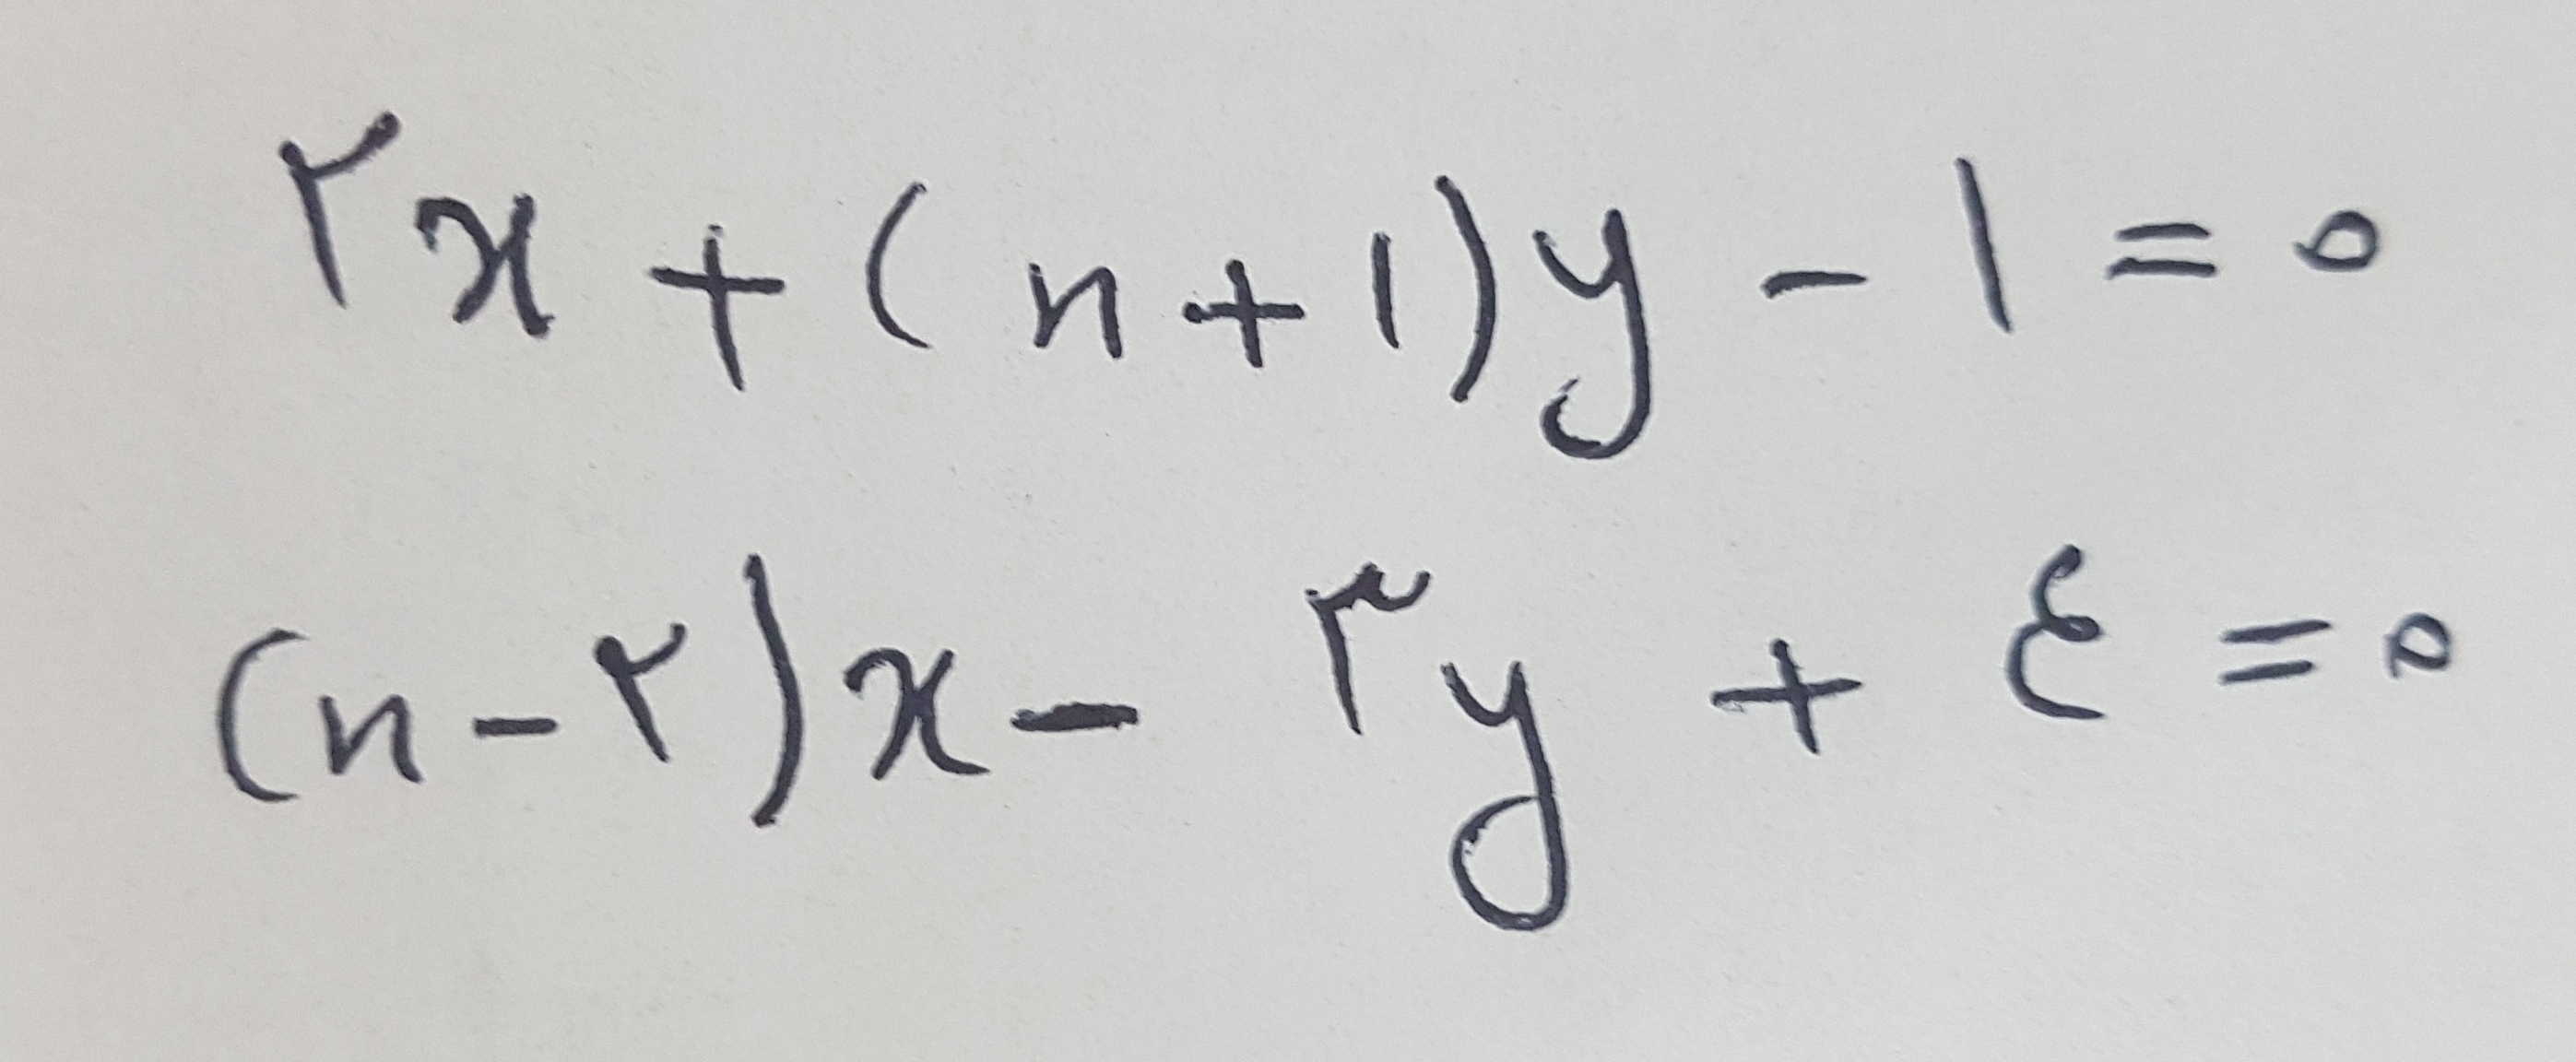 ۲x + (n+۱)y - ۱ = ۰
(n-۲)x - ۳y + ۴ = ۰